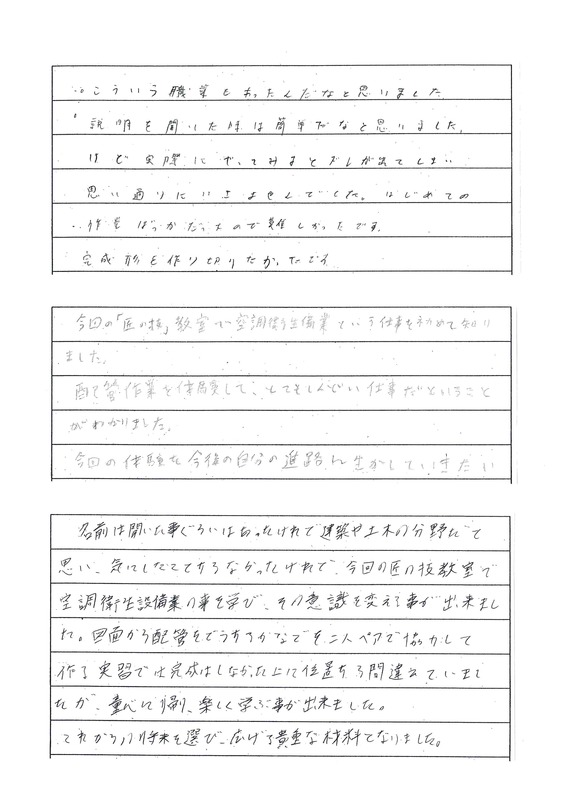 こういう職業もあったんだなと思いました。
説明を聞いた時は簡単だなと思いました。
けど実際にやってみるとズレが出てしまい
思い通りにいきませんでした。はじめての
作業ばっかだったので難しかったです。
完成形を作り切りたかったです
今回の「匠の技」教室で空調衛生設備業という仕事を初めて知り
ました。
配管作業を体験して、とてもしんどい仕事だということ
がわかりました。
今回の体験を今後の自分の進路に生かしていきたい
名前は聞いた事ぐらいはあったけれど建築や土木の分野だと
思い、気にしたことすらなかったけれど、今回の匠の技教室で
空調衛生設備業の事を学び、その意識を変える事が出来まし
た。図面から配管をどうするかなどを二人ペアで協力して
作る実習では完成はしなかった上に位置すら間違えていまし
たが、童心に帰り、楽しく学ぶ事が出来ました。
これからの将来を選び、広げる貴重な材料となりました。